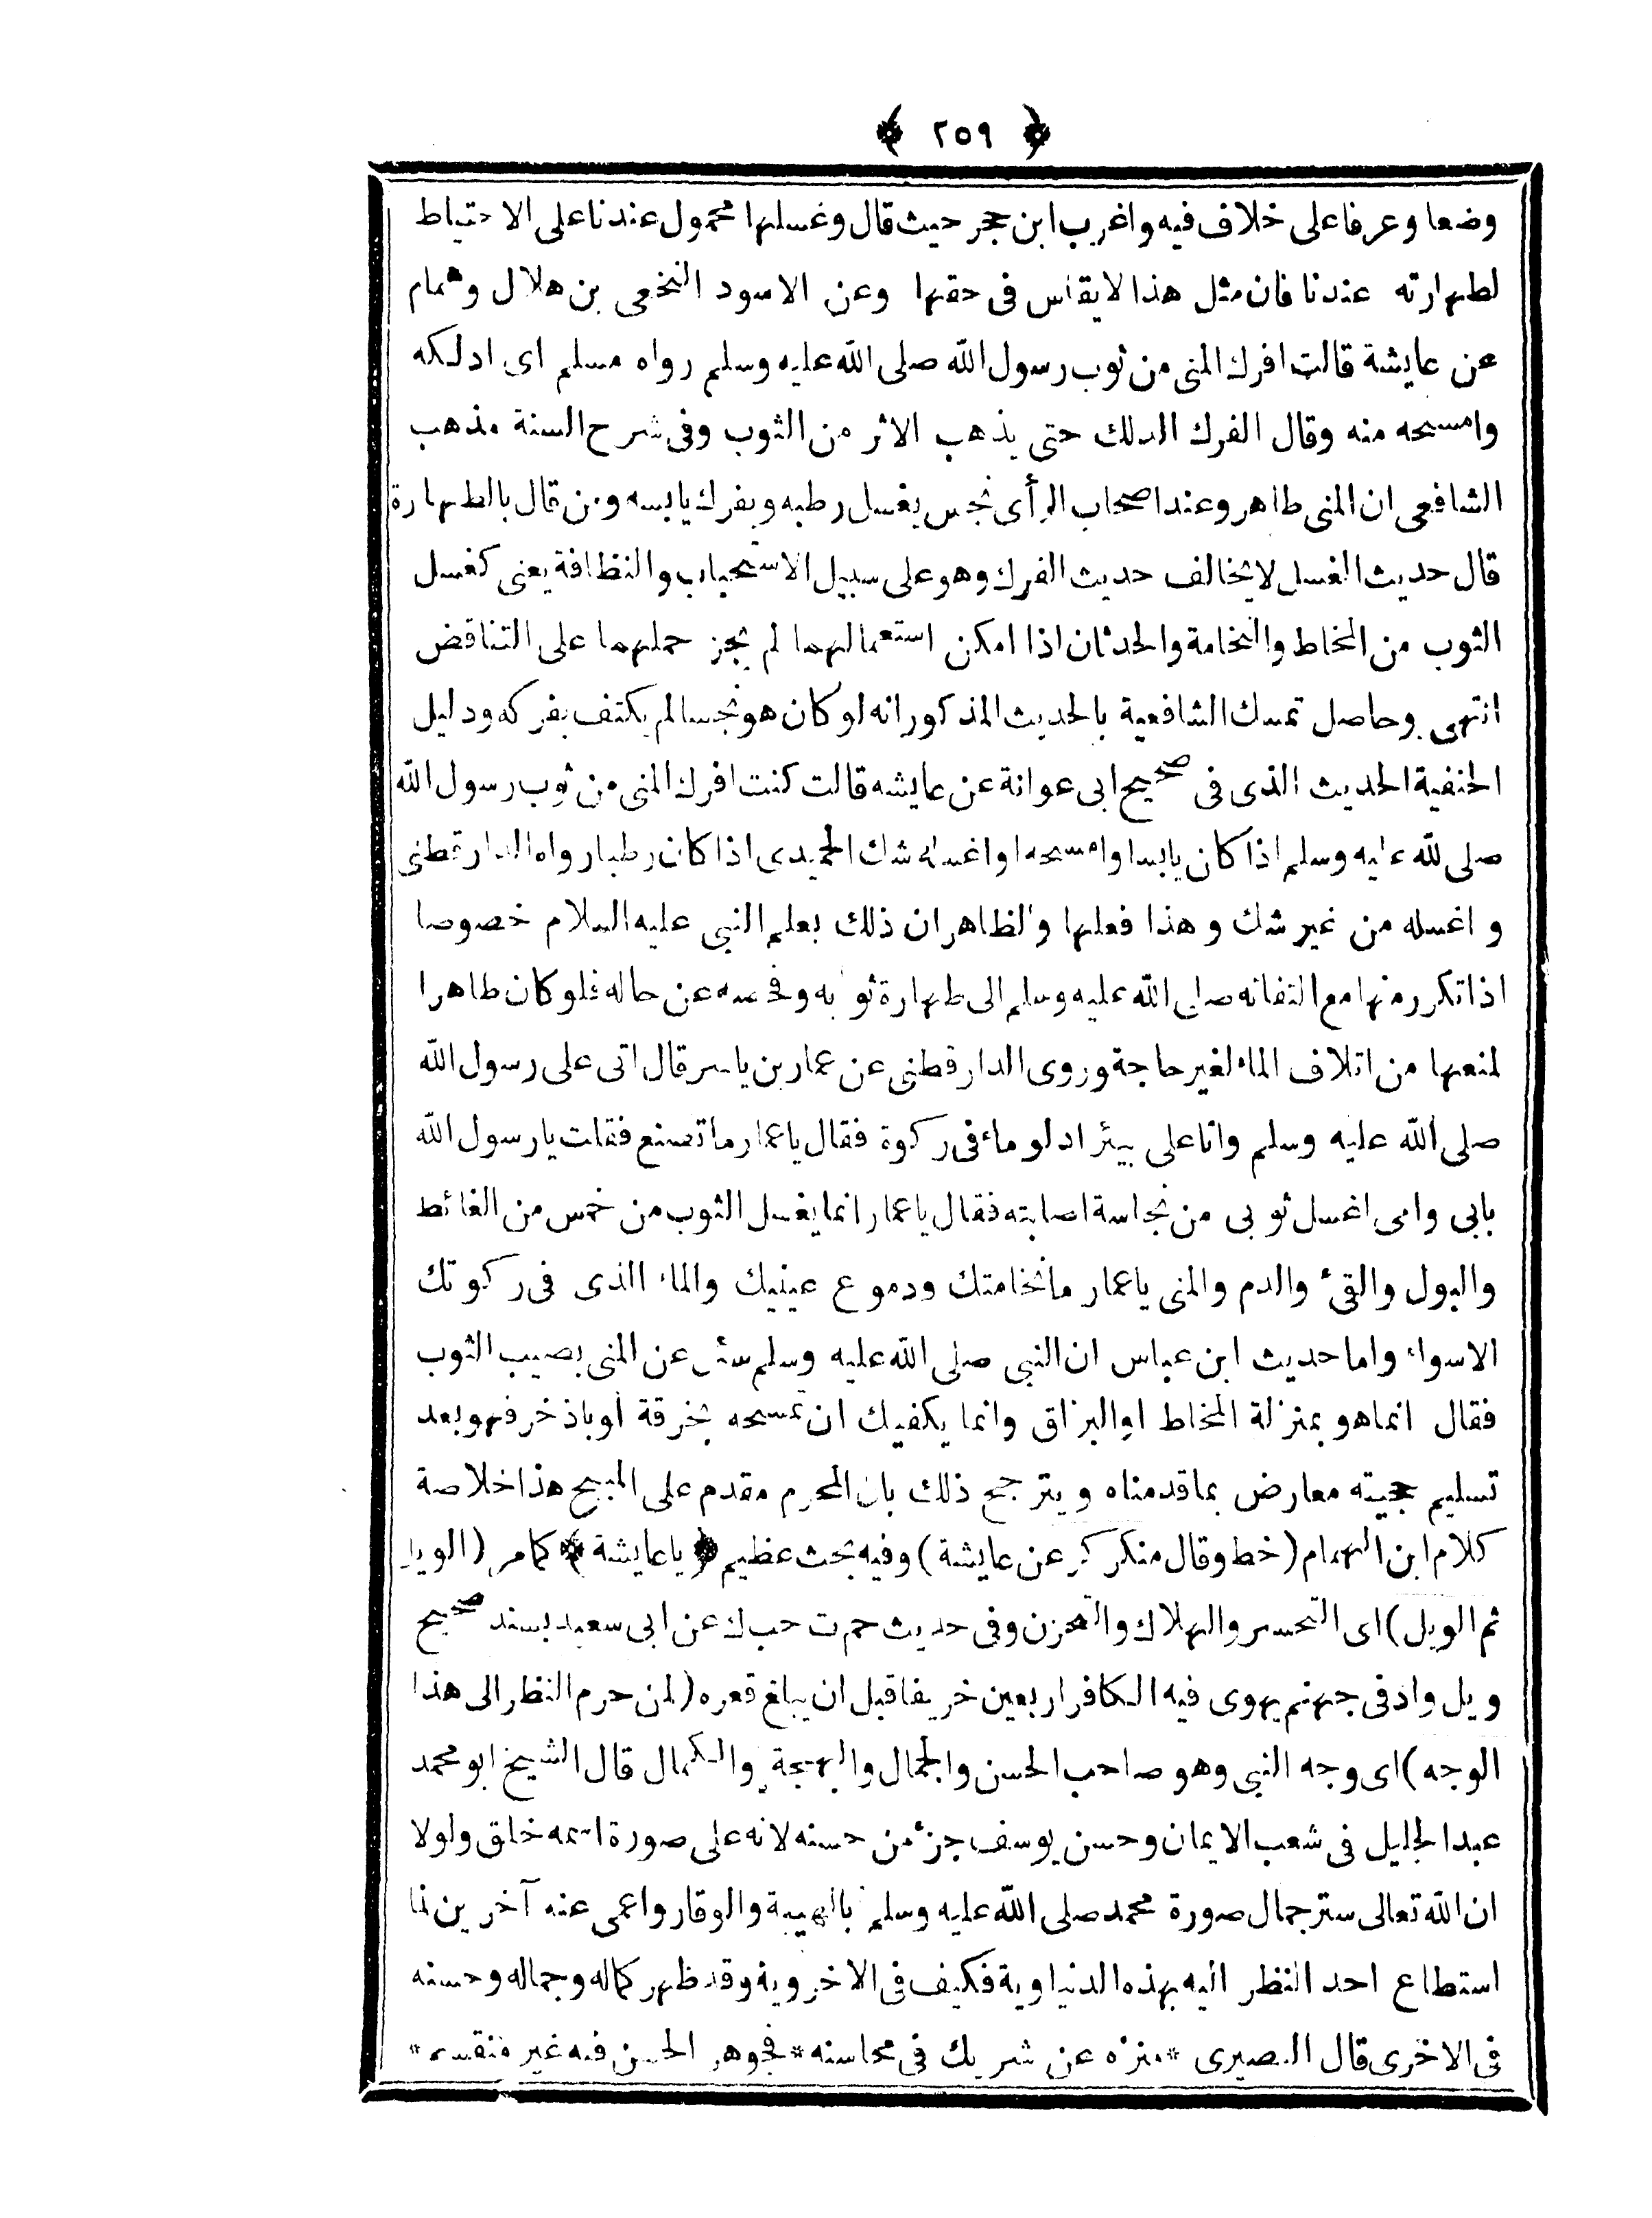 ﴿ ٢٥٩ ﴾
وضعا وعرفا على خلاف فيه واغرب ابن حجر حيث قال وغسلها محمول عندنا على الاحتياط
لطهارته عندنا فان مثل هذا لا يقاس فى حقها وعن الاسود النخعى بن هلال وهمام
عن عايشة قالت افرك المنى من ثوب رسول الله صلى الله عليه وسلم رواه مسلم اى ادلكه
وامسحه منه وقال الفرك الدلك حتى يذهب الاثر من الثوب وفى شرح السنة مذهب
الشافعى ان المنى طاهر وعند اصحاب الرأى نجس يغسل رطبه ويفرك يابسه ومن قال بالطهارة
قال حديث الغسل لا يخالف حديث الفرك وهو على سبيل الاستحباب والنظافة يعنى كغسل
الثوب من المخاط والنخامة والحدثان اذا امكن استعمالهما لم يجز حملهما على التناقض
انتهى وحاصل تمسك الشافعية بالحديث المذكور انه لو كان هو نجسا لم يكتف بفركه ودليل
الحنفية الحديث الذى فى صحيح ابى عوانة عن عايشه قالت كنت افرك المنى من ثوب رسول الله
صلى الله عليه وسلم اذا كان يابسا وامسحه او اغسله شك الحميدى اذا كان رطبا رواه الدار قطنى
و اغسله من غير شك و هذا فعلها والظاهر ان ذلك بعلم النبى عليه السلام خصوصا
اذا تكرر منها مع التفاته صلى الله عليه وسلم الى طهارة ثوبه وفحصه عن حاله فلو كان طاهرا
لمنعها من اتلاف الماء لغير حاجة وروى الدار قطنى عن عمار بن ياسر قال اتى على رسول الله
صلى الله عليه وسلم وانا على بيئر ادلو ماء فى ركوة فقال يا عمار ما تصنع فقلت يا رسول الله
بابى وامى اغسل ثوبى من نجاسة اصابته فقال يا عمار انما يغسل الثوب من خمس من الغائط
والبول والقىء والدم والمنى يا عمار ما نخامتك ودموع عينيك والماء الذى فى ركوتك
الاسواء واما حديث ابن عباس ان النبى صلى الله عليه وسلم سئل عن المنى يصيب الثوب
فقال انما هو بمنزلة المخاط او البزاق وانما يكفيك ان تمسحه بخرقة او باذخر فهو بعد
تسليم حجيته معارض بما قدمناه و يترجح ذلك بان المحرم مقدم على المبيح هذا خلاصة
كلام ابن الهمام (خط وقال منكر كر عن عايشة) وفيه بحث عظيم ﴿ يا عايشة ﴾ كما مر (الويل
ثم الويل) اى التحسر والهلاك والتحزن وفى حديث حم ت حب ك عن ابى سعيد بسند صحيح
ويل واد فى جهنم يهوى فيه الكافر اربعين خريفا قبل ان يبلغ قعره (لمن حرم النظر الى هذا
الوجه) اى وجه النبى وهو صاحب الحسن والجمال والبهجة والكمال قال الشيخ ابو محمد
عبد الجليل فى شعب الايمان وحسن يوسف جزء من حسنه لانه على صورة اسمه خلق ولولا
ان الله تعالى ستر جمال صورة محمد صلى الله عليه وسلم بالهيبة والوقار واعمى عنه آخرين لما
استطاع احد النظر اليه بهذه الدنياوية فكيف فى الاخروية وقد ظهر كماله وجماله وحسنه
فى الاخرى قال البصيرى * منزه عن شريك فى محاسنه * فجوهر الحسن فيه غير منقسم *